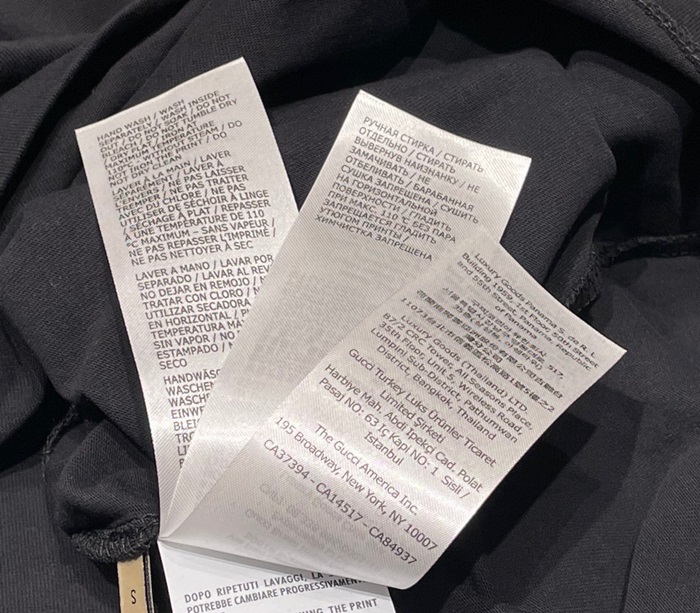 HAND WASH / WASH
SEPARATELY / WASH INSIDE
OUT / DO NOT SOAK / DO NOT
BLEACH / DO NOT TUMBLE DRY
/ DRY FLAT / IRON AT
MAXIMUM TEMPERATURE
110°C WITHOUT STEAM / DO
NOT IRON PRINT / DO
NOT DRY CLEAN
LAVER À LA MAIN / LAVER
SÉPARÉMENT / LAVER
ENVERS / NE PAS LAISSER
TREMPER / NE PAS TRAITER
AVEC DU CHLORE / NE PAS
UTILISER DE SÉCHOIR À LINGE
/ SÉCHER À PLAT / REPASSER
À UNE TEMPÉRATURE DE 110
°C MAXIMUM – SANS VAPEUR /
NE PAS REPASSER L'IMPRIMÉ /
NE PAS NETTOYER À SEC
LAVER A MANO / LAVAR POR
SEPARADO / LAVAR AL REV
NO DEJAR EN REMOJO / N
TRATAR CON CLORO / N
UTILIZAR SECADORA
EN HORIZONTAL / P
TEMPERATURA MA
SIN VAPOR / NO
ESTAMPADO / N
SECO
HANDWÄSC
WASCHEN
WASCHE
EINWE
BLEI
TRO
РУЧНАЯ СТИРКА / СТИРАТЬ
ОТДЕЛЬНО / СТИРАТЬ
ВЫВЕРНУВ НАИЗНАНКУ / НЕ
ЗАМАЧИВАТЬ / НЕ
ОТБЕЛИВАТЬ / БАРАБАННАЯ
СУШКА ЗАПРЕЩЕНА / СУШИТЬ
НА ГОРИЗОНТАЛЬНОЙ
ПОВЕРХНОСТИ / ГЛАДИТЬ
ПРИ МАКС 110 °C БЕЗ ПАРА
ЗАПРЕЩАЕТСЯ ГЛАДИТЬ
УТЮГОМ ПРИНТЫ /
ХИМЧИСТКА ЗАПРЕЩЕНА
Luxury Goods Panama S. de R. L.
Building 1969, 1st Floor, 50th Street
and 55th Street, Panama, Republic
of Panama
Luxury Goods (Thailand) LTD.
87/2 CRC Tower, All Seasons Place,
35th Floor, Unit 5, Wireless Road,
Lumpini Sub-District, Pathumwan
District, Bangkok, Thailand
Gucci Turkey Lüks Ürünler Ticaret
Limited Şirketi
Harbiye Mah. Abdi İpekçi Cad. Polat
Pasaj NO: 63 İç Kapı NO: 1 Sisli /
Istanbul
The Gucci America Inc.
195 Broadway, New York, NY 10007
CA37394 - CA14517 - CA84937
S
DOPO RIPETUTI LAVAGGI, LA
POTREBBE CAMBIARE PROGRESSIVAMEN
THE PRINT